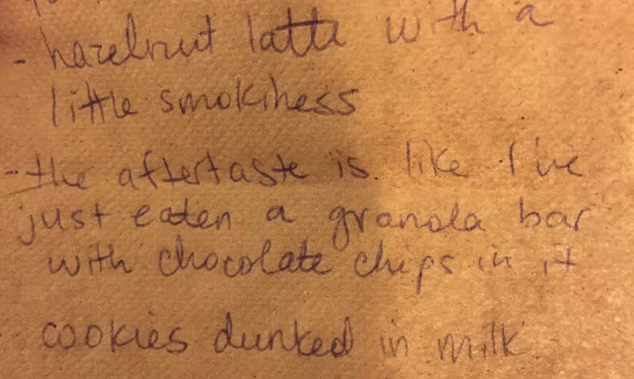 - hazelnut latte with a
little smokiness
- the aftertaste is like I've
just eaten a granola bar
with chocolate chips in it
cookies dunked in milk.